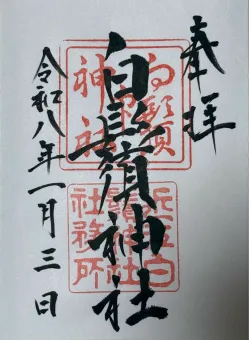 奉拝
白鬚神社
令和八年一月三日
白鬚
神社
近江白
鬚神社
社務所